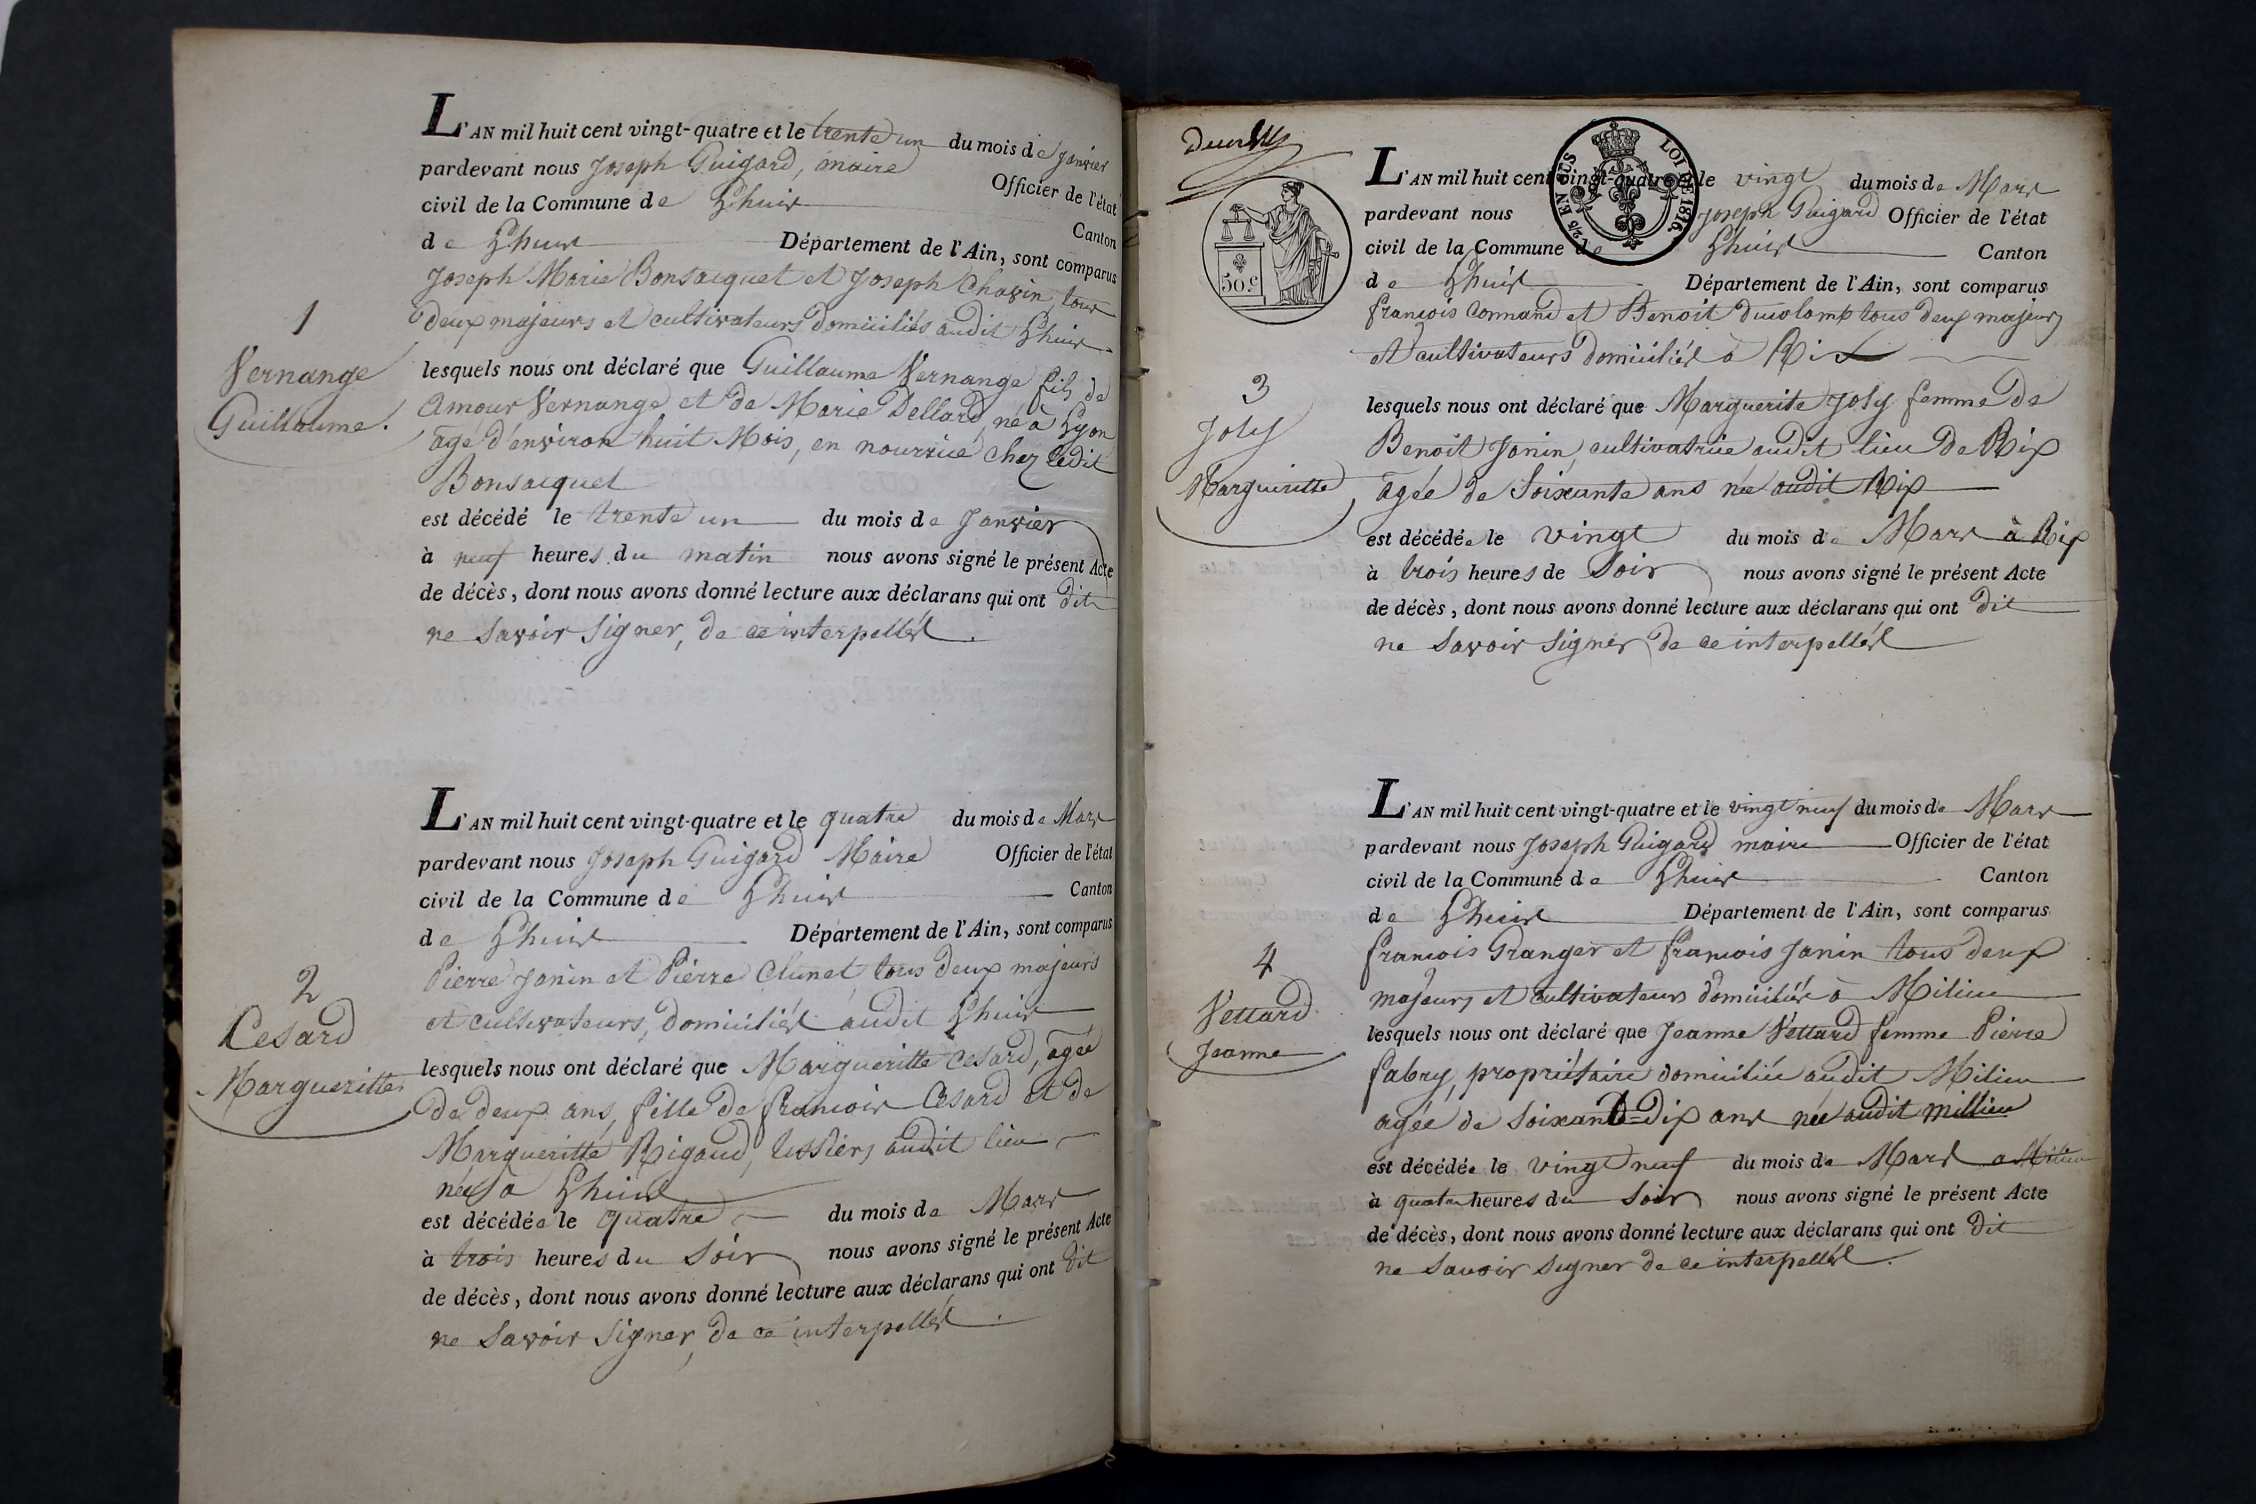 L'AN mil huit cent vingt-quatre et le trente un du mois de Janvier
pardevant nous Joseph Guigard, maire Officier de l'état
civil de la Commune de Lhuis Canton
de Lhuis Département de l'Ain, sont comparus
Joseph Marie Bonsacquet et Joseph Chavin, tous
deux majeurs et cultivateurs domiciliés audit Lhuis
lesquels nous ont déclaré que Guillaume Vernange fils de
Amour Vernange et de Marie Dellard, né à Lyon
agé d'environ huit Mois, en nourrice chez ledit
Bonsacquet
est décédé le trente un du mois de Janvier
à neuf heures du matin nous avons signé le présent Acte
de décès, dont nous avons donné lecture aux déclarans qui ont dit
ne savoir signer, de ce interpellés.
1
Vernange
Guillaume.
L'AN mil huit cent vingt-quatre et le quatre du mois de Mars
pardevant nous Joseph Guigard Maire Officier de l'état
civil de la Commune de Lhuis Canton
de Lhuis Département de l'Ain, sont comparus
Pierre Janin et Pierre Clunet, tous deux majeurs
et cultivateurs, domiciliés audit Lhuis
lesquels nous ont déclaré que Margueritte Cesard, agée
de deux ans, fille de francois Cesard et de
Margueritte Rigaud, audit lieu
née à Lhuis
est décédée le quatre du mois de Mars
à trois heures du Soir nous avons signé le présent Acte
de décès, dont nous avons donné lecture aux déclarans qui ont dit
ne Savoir signer, de ce interpellés.
2
Cesard
Margueritte
50 c.
2/2 EN SUS
LOI DE 1816
L'AN mil huit cent vingt-quatre et le vingt du mois de Mars
pardevant nous Joseph Guigard Officier de l'état
civil de la Commune de Lhuis Canton
de Lhuis Département de l'Ain, sont comparus
françois Connand et Benoit Ducolomb tous deux majeurs
et cultivateurs domiciliés à Rix
lesquels nous ont déclaré que Marguerite Joly femme de
Benoit Janin, cultivatrice audit lieu de Rix
agée de Soixante ans née audit Rix
est décédée le vingt du mois de Mars à Rix
à trois heures de Soir nous avons signé le présent Acte
de décès, dont nous avons donné lecture aux déclarans qui ont dit
ne Savoir Signer de ce interpellés
3
Joly
Margueritte
L'AN mil huit cent vingt-quatre et le vingt neuf du mois de Mars
pardevant nous Joseph Guigard maire Officier de l'état
civil de la Commune de Lhuis Canton
de Lhuis Département de l'Ain, sont comparus
francois Granger et francois Janin tous deux
majeurs et cultivateurs domiciliés à Milieu
lesquels nous ont déclaré que Jeanne Vettard femme Pierre
fabry, propriétaire domiciliée audit Milieu
agée de Soixante-Dix ans née audit millieu
est décédée le vingt neuf du mois de Mars a Milieu
à quatre heures du Soir nous avons signé le présent Acte
de décès, dont nous avons donné lecture aux déclarans qui ont dit
ne Savoir signer de ce interpellés.
4
Vettard
Jeanne